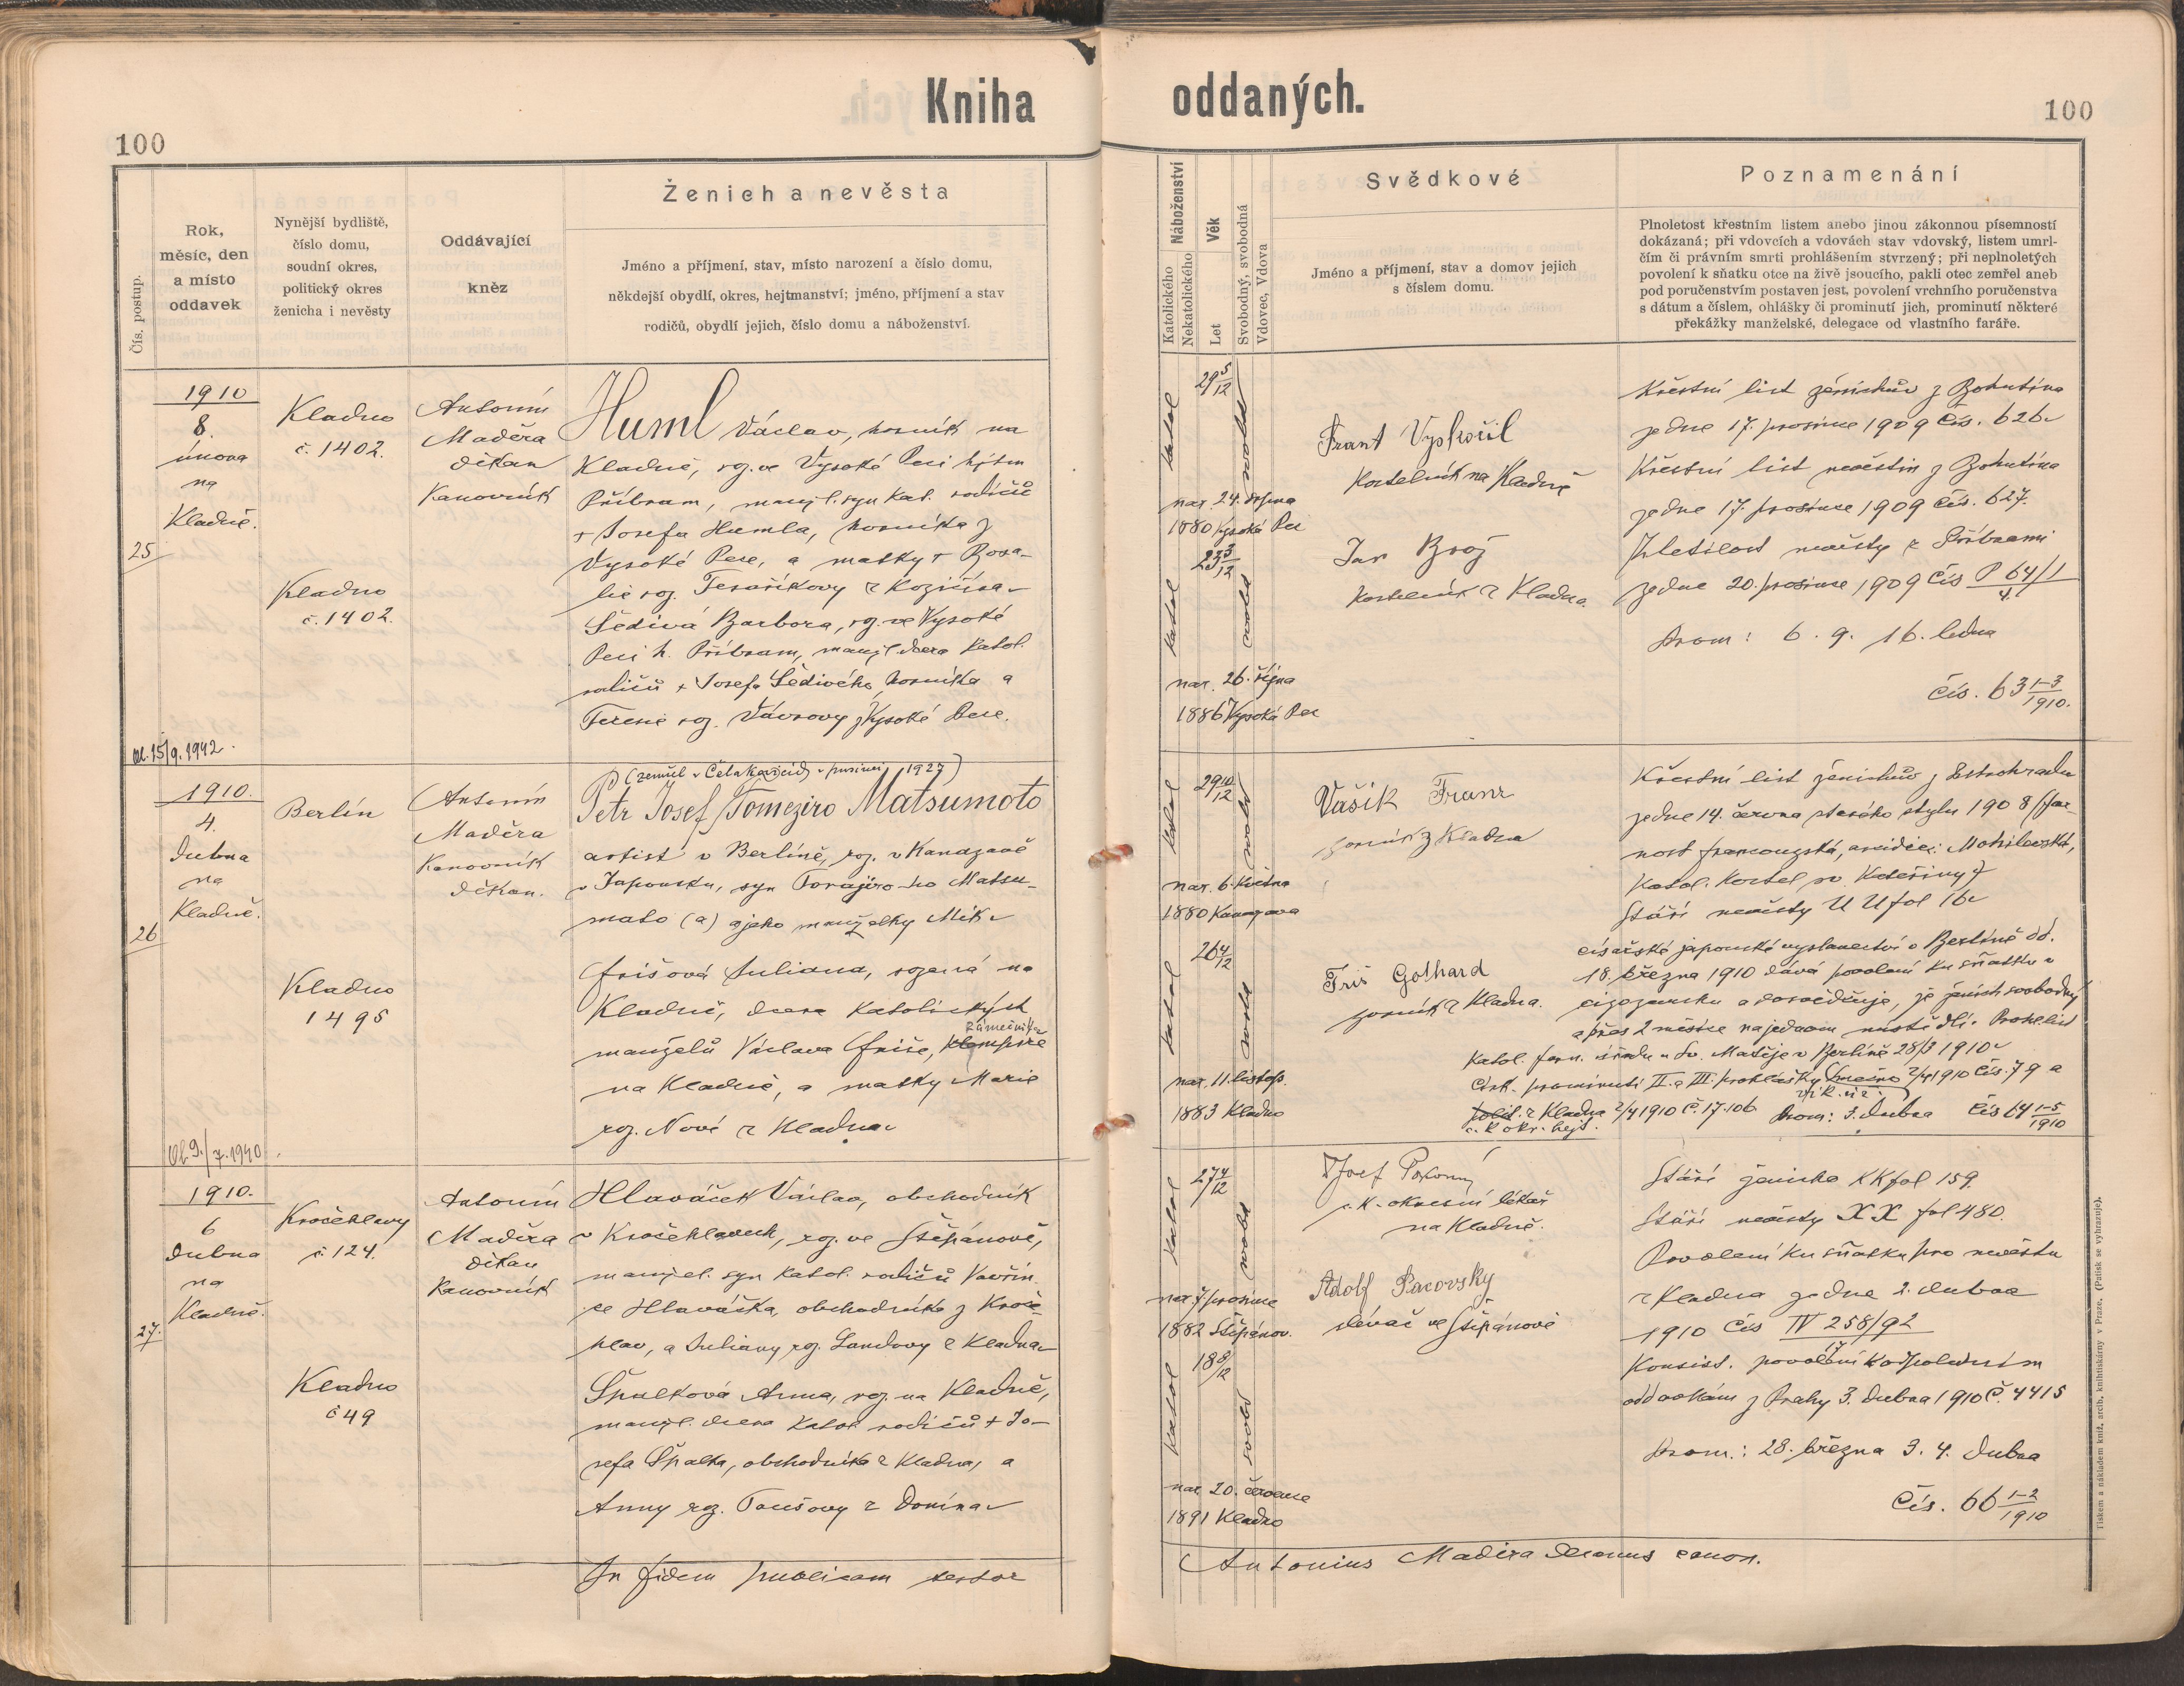 Kniha oddaných.
100
100
Čís. postup.
Rok,
měsíc, den
a místo
oddavek
Nynější bydliště,
číslo domu,
soudní okres,
politický okres
ženicha i nevěsty
Oddávající
kněz
Ženich a nevěsta
Jméno a příjmení, stav, místo narození a číslo domu,
někdejší obydlí, okres, hejtmanství; jméno, příjmení a stav
rodičů, obydlí jejich, číslo domu a náboženství.
Náboženství
Katolického
Nekatolického
Věk
Let
Svobodný, svobodná
Vdovec, Vdova
Svědkové
Jméno a příjmení, stav a domov jejich
s číslem domu.
Poznamenání
Plnoletost křestním listem anebo jinou zákonnou písemností
dokázaná; při vdovcích a vdovách stav vdovský, listem umrl-
čím či právním smrti prohlášením stvrzený; při neplnoletých
povolení k sňatku otce na živě jsoucího, pakli otec zemřel aneb
pod poručenstvím postaven jest, povolení vrchního poručenstva
s dátum a číslem, ohlášky či prominutí jich, prominutí některé
překážky manželské, delegace od vlastního faráře.
25
1910
8.
února
na
Kladně.
Kladno
č. 1402.
Kladno
č. 1402.
Antonín
Maděra
děkan
Kanovník
Huml Václav, horník na
Kladně, roz. ve Vysoké Peci hejtm
Příbram, manž. syn kat. rodičů
+ Josefa Humla, horníka z
Vysoké Pece, a matky + Roza-
lie roz. Tesaříkovy z Kozičína
Šedivá Barbora, roz. ve Vysoké
Peci h. Příbram, manž. dcera katol.
rodičů + Josefa Šedivého, horníka a
Terezie roz. Vávrovy z Vysoké Pece.
katol
29 5/12
svobod
nar. 24. srpna
1880 Vysoká Pec
23 3/12
katol
svobod
nar. 26. října
1886 Vysoká Pec
Frant Vyskočil
Kostelník na Kladně
Jan Brož
Kostelník z Kladna.
Křestní list ženichův z Bohutína
ze dne 17. prosince 1909 čís. 626
Křestní list nevěstin z Bohutína
ze dne 17. prosince 1909 čís. 627.
Zletilost nevěsty z Příbrami
ze dne 20. prosince 1909 čís P 64/1
4.
Prom: 6. 9. 16. ledna
čís. 63 1-3/1910.
Vl. 15/9. 1942.
26
1910.
4.
dubna
na
Kladně.
Berlín
Kladno
1495
Antonín
Maděra
Kanovník
děkan.
(zemřel v Čelakovicích v prosinci 1927)
Petr Josef Tomeziro Matsumoto
artist v Berlíně, roz. v Kanazavě
v Japonsku, syn Torajiro-ho Matsu-
moto (a) a jeho manželky Mik
Frišová Juliana, rozená na
Kladně, dcera katolických
manželů Václava Friše, klempíře
zámečníka
na Kladně, a matky Marie
roz. Nové z Kladna
katol
29 10/12
svobod
nar. 6. května
1880 Kanazava
26 4/12
katol
svobod
nar. 11. listop.
1883 Kladno
Vašík Franz
horník z Kladna
Friš Gothard
horník z Kladna.
Křestní list ženichův z Petrohradu
ze dne 14. června starého stylu 1908 (far-
nost francouzská, arcidiec. Mohilevská,
katol. kostel sv. Kateřiny)
Stáří nevěsty U U fol 16
císařské japonské vyslanectví v Berlíně dd.
18. března 1910 dává povolení ku sňatku v
cizozemsku a dosvědčuje, že ženich svobodný
a přes 2 měsíce na jednom místě dlí. Prohl. list
katol. farn. úřadu u sv. Matěje v Berlíně 28/3 1910
Círk. prominutí II. a III. prohlášky Smečno 2/4 1910 čís. 79 a
polit. z Kladna 2/4 1910 č. 17.106 Prom: 3. dubna čís 64 1-5/1910
c. k okr. hejt.
Vl. 9./7. 1940
27.
1910.
6
dubna
na
Kladně.
Kročehlavy
č. 124.
Kladno
č 49
Antonín
Maděra
děkan
Kanovník
Hlaváček Václav, obchodník
v Kročehlavech, roz. ve Štěpánově,
manžel. syn katol. rodičů Vavřin-
ce Hlaváčka, obchodníka z Kroče-
hlav, a Juliany roz. Landovy z Kladna
Špalková Anna, roz. na Kladně,
manžl. dcera katol. rodičů + Jo-
sefa Špalka, obchodníka z Kladna, a
Anny roz. Toušovy z Donína
katol
27 4/12
svobod
nar. 7 prosince
1882 Štěpánov.
18 8/12
katol
svobod
nar. 20. července
1891 Kladno
Josef Pokorný
c. k. okresní lékař
na Kladně.
Adolf Pacovský
slévač ve Štěpánově
Stáří ženicha KK fol 159
Stáří nevěsty XX fol 480.
Povolení ku sňatku pro nevěstu
z Kladna ze dne 2. dubna
1910 čís IV 258/92
17
Konsist. povolení k odpoledním
oddavkám z Prahy 3. dubna 1910 č. 4415
Prom.: 28. března 3. 4. dubna
čís. 66 1-2/1910
In fidem publicam testor
Antonius Maděra decanus canon.
Tiskem a nákladem kníž. arcib. knihtiskárny v Praze. (Patisk se vyhrazuje).